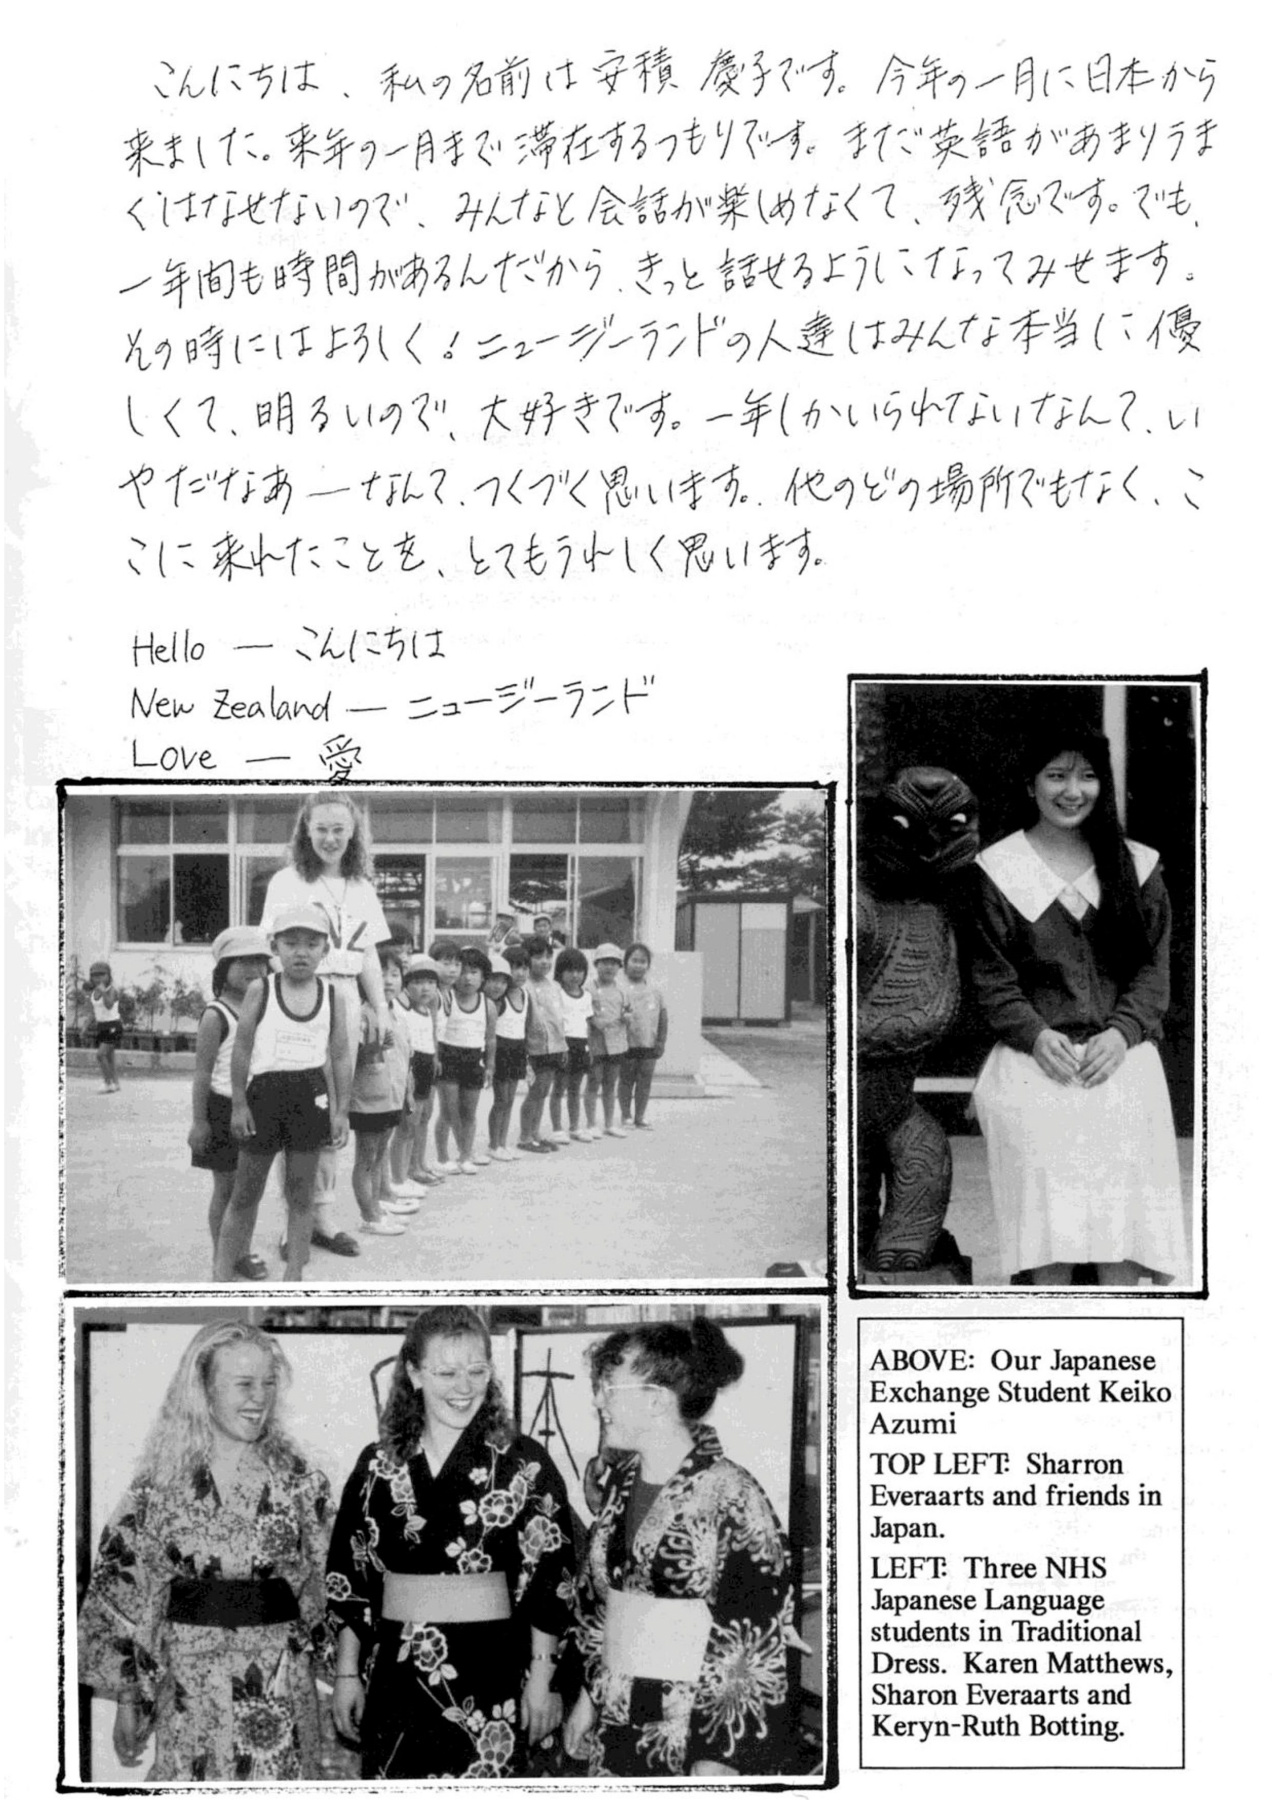 こんにちは、私の名前は安積 慶子です。今年の一月に日本から
来ました。来年の一月まで滞在するつもりです。まだ英語があまりうま
くはなせないので、みんなと会話が楽しめなくて、残念です。でも、
一年間も時間があるんだから、きっと話せるようになってみせます。
その時にはよろしく！ニュージーランドの人達はみんな本当に優
しくて、明るいので、大好きです。一年しかいられないなんて、い
やだなあ—なんて、つくづく思います。他のどの場所でもなく、こ
こに来れたことを、とてもうれしく思います。
Hello — こんにちは
New Zealand — ニュージーランド
Love — 愛
NZ
ABOVE: Our Japanese
Exchange Student Keiko
Azumi
TOP LEFT: Sharron
Everaarts and friends in
Japan.
LEFT: Three NHS
Japanese Language
students in Traditional
Dress. Karen Matthews,
Sharon Everaarts and
Keryn-Ruth Botting.